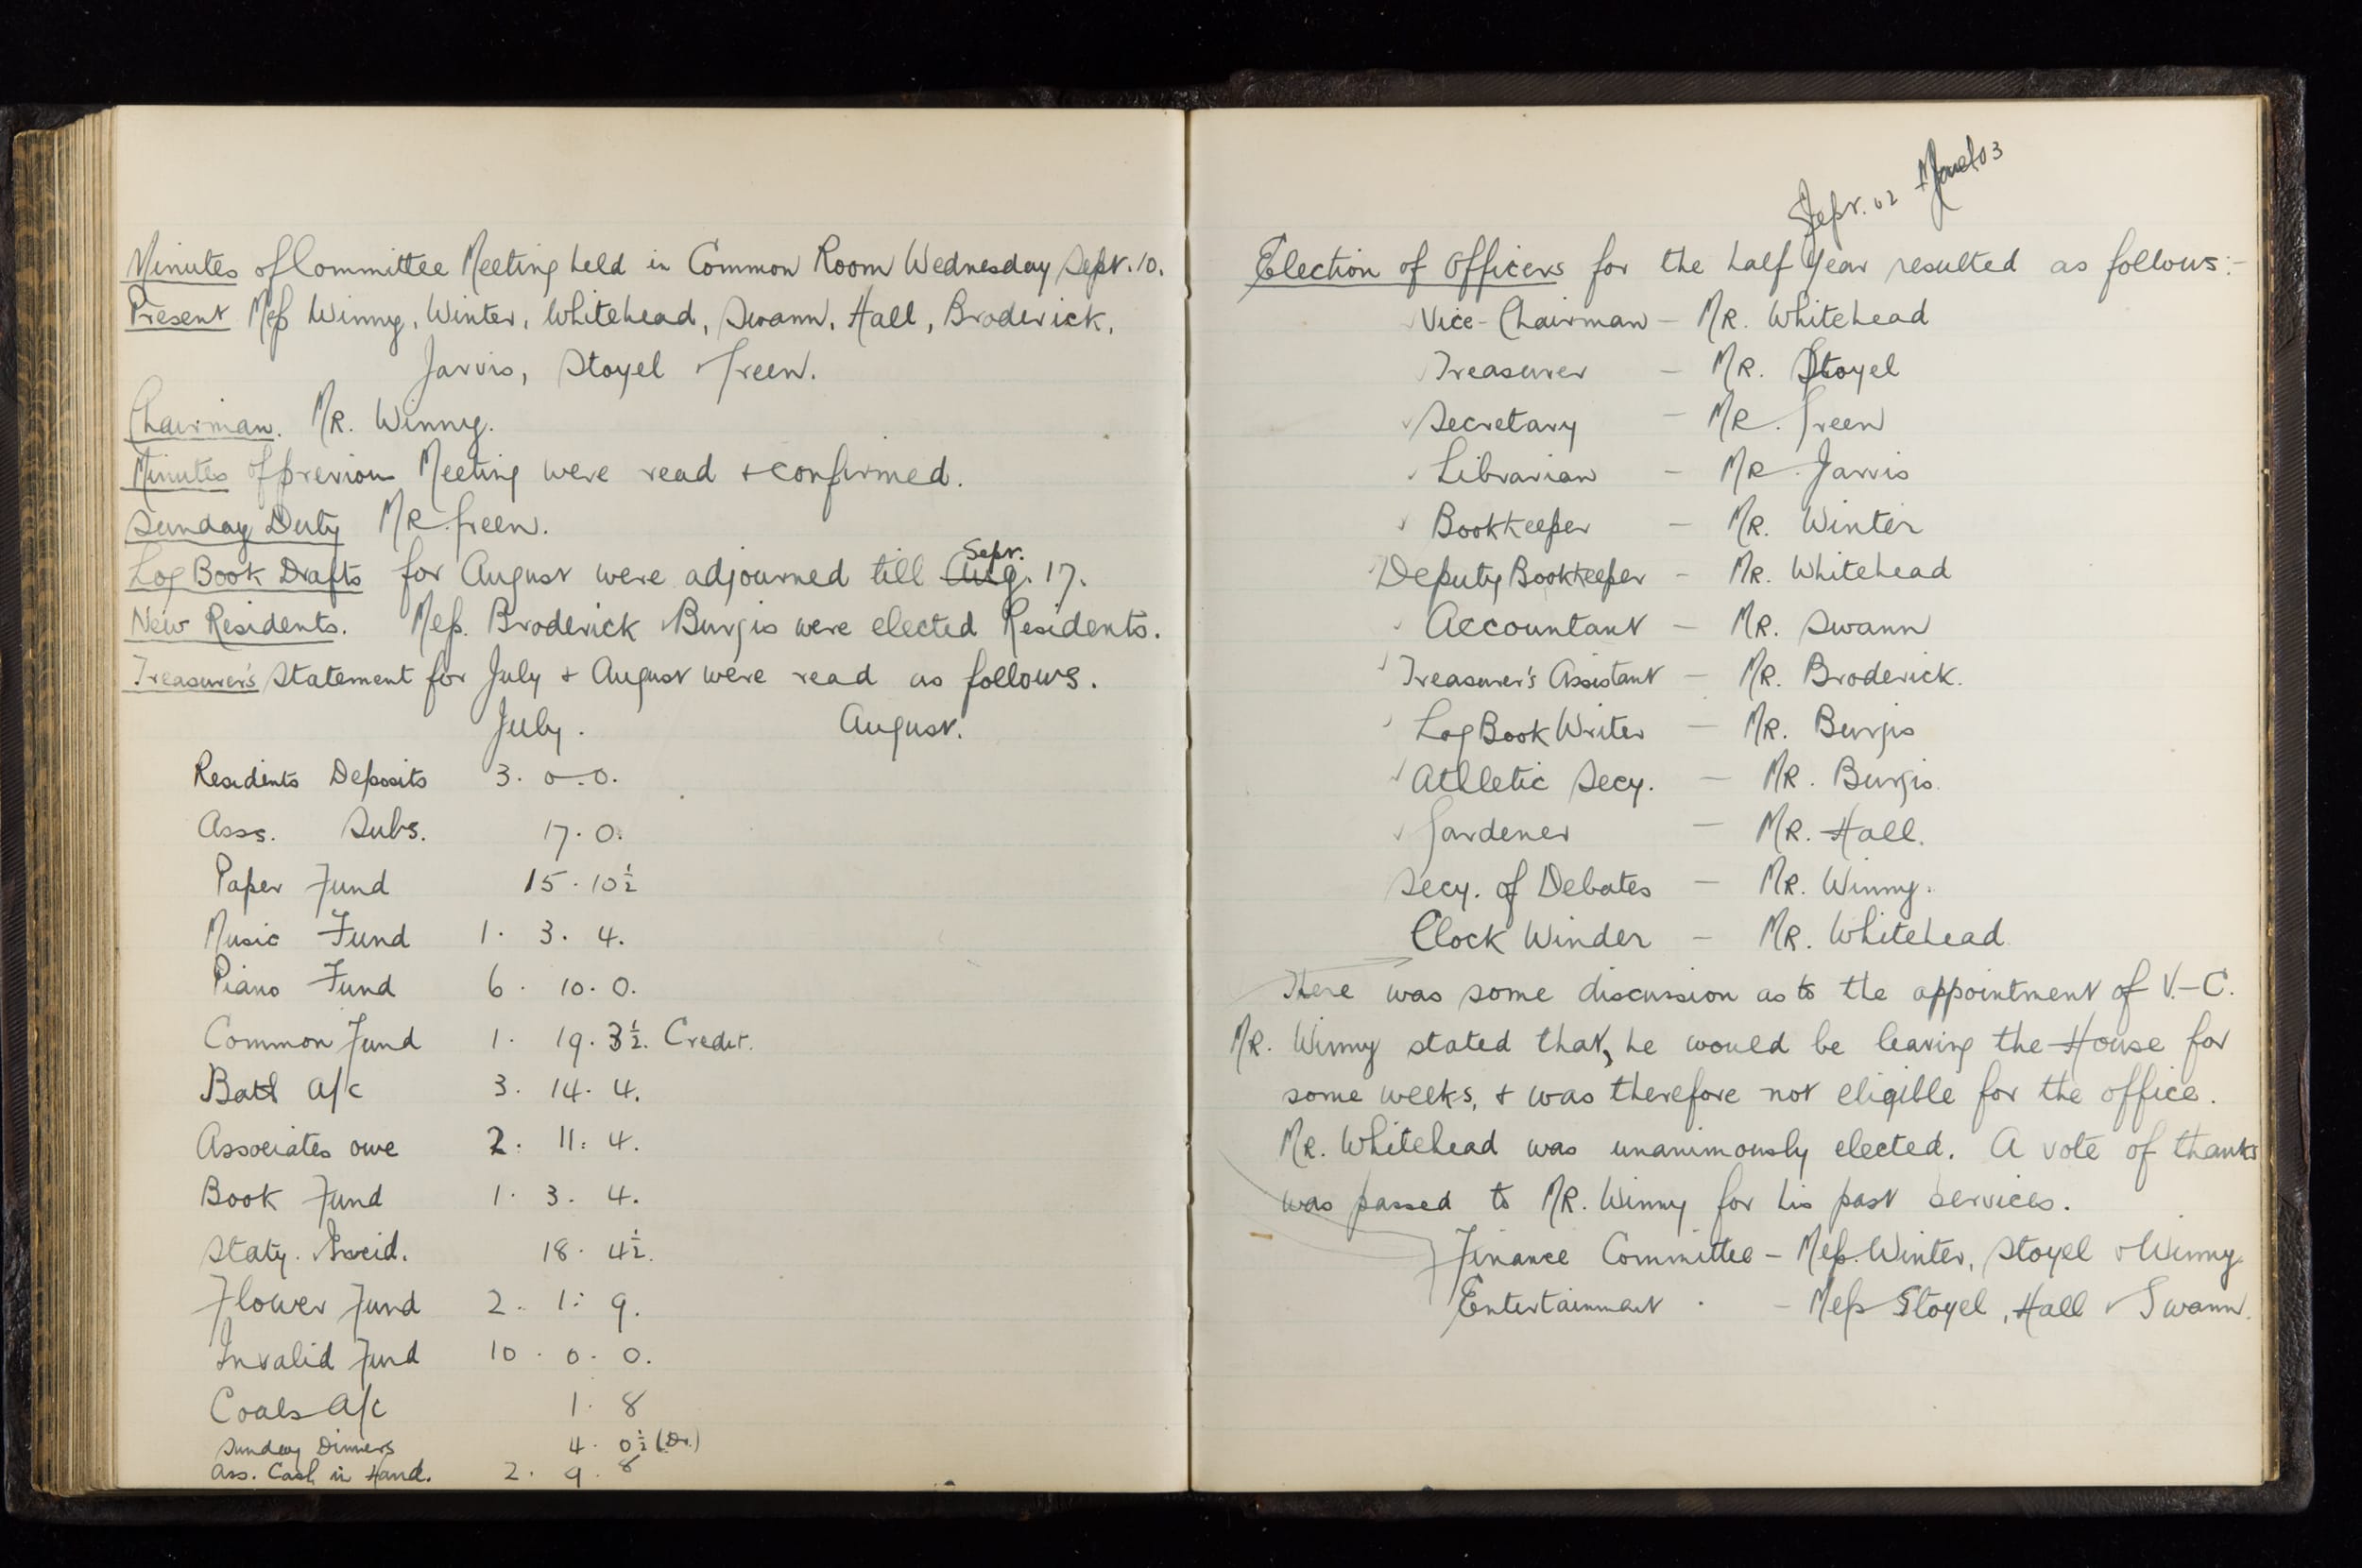 Minutes of Committee Meeting held in Common Room Wednesday Sept. 10.
Present Mess Winny, Winter, Whitehead, Swann, Hall, Broderick,
Jarvis, Stoyel & Green.
Chairman. Mr. Winny.
Minutes of previous Meeting were read & confirmed.
Sunday Duty Mr Green.
Sept.
Log Book Drafts for August were adjourned till Aug. 17.
New Residents. Mess. Broderick & Burgis were elected Residents.
Treasurer's Statement for July & August were read as follows.
July. August.
Residents Deposits 3. 0-0.
Ass. Subs. 17. 0.
Paper Fund 15. 10½
Music Fund 1. 3. 4.
Piano Fund 6. 10. 0.
Common Fund 1. 19. 3½. Credit.
Bath a/c 3. 14. 4.
Associates owe 2. 11. 4.
Book Fund 1. 3. 4.
Staty. 18. 4½.
Flower Fund 2. 1. 9.
Invalid Fund 10. 0. 0.
Coals a/c 1. 8
Sunday Dinners 4. 0½ (Dr.)
Ass. Cash in Hand. 2. 9. 8
Sept. 02 March 03
Election of Officers for the half year resulted as follows:-
Vice-Chairman - Mr. Whitehead
Treasurer - Mr. Stoyel
Secretary - Mr. Green
Librarian - Mr. Jarvis
Bookkeeper - Mr. Winter
Deputy Bookkeeper - Mr. Whitehead
Accountant - Mr. Swann
Treasurer's Assistant - Mr. Broderick.
Log Book Writer - Mr. Burgis
Athletic Secy. - Mr. Burgis.
Gardener - Mr. Hall.
Secy. of Debates - Mr. Winny.
Clock Winder - Mr. Whitehead
There was some discussion as to the appointment of V.-C.
Mr. Winny stated that, he would be leaving the House for
some weeks, & was therefore not eligible for the office.
Mr. Whitehead was unanimously elected. A vote of thanks
was passed to Mr. Winny for his past services.
Finance Committee - Mess. Winter, Stoyel & Winny
Entertainment . - Mess Stoyel, Hall & Swann.